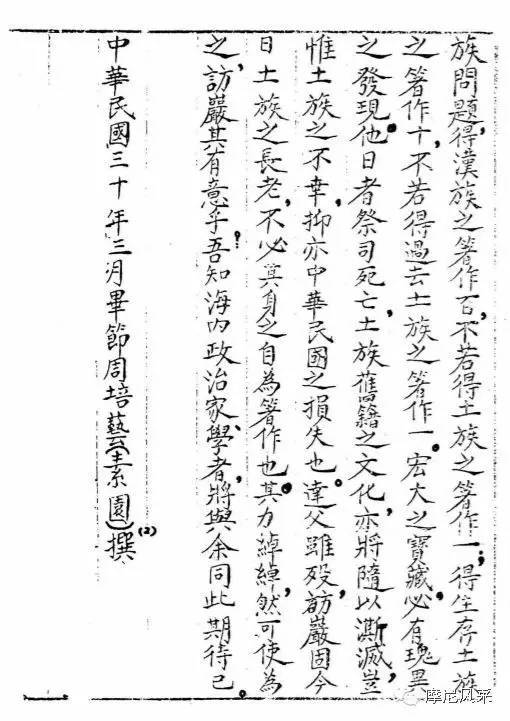 族問題,得漢族之箸作百,不若得土族之箸作一;得生存土族
之箸作十,不若得過去土族之箸作一。宏大之寶藏,必有瑰異
之發現。他日者祭司死亡,土族舊籍之文化,亦將隨以澌滅,豈
惟土族之不幸,抑亦中華民國之損失也。達父雖殁,訪嚴固今
日土族之長老,不必其身之自為箸作也。其力綽綽然可使為
之,訪嚴其有意乎?吾知海內政治家,學者,將與余同此期待已。
中華民國三十年三月畢節周培藝(素園)撰(2)
摩尼风采